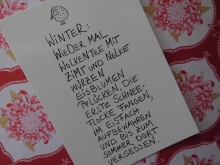 WINTER:
WIEDER MAL
WOLKENTEE MIT
ZIMT UND NELKE
WÜRZEN
EISBLUMEN
PFLÜCKEN, DIE
ERSTE SCHNEE-
FLOCKE FANGEN,
IM EISFACH
AUFBEWAHREN
UND BIS ZUM
SOMMER DORT
VERGESSEN.